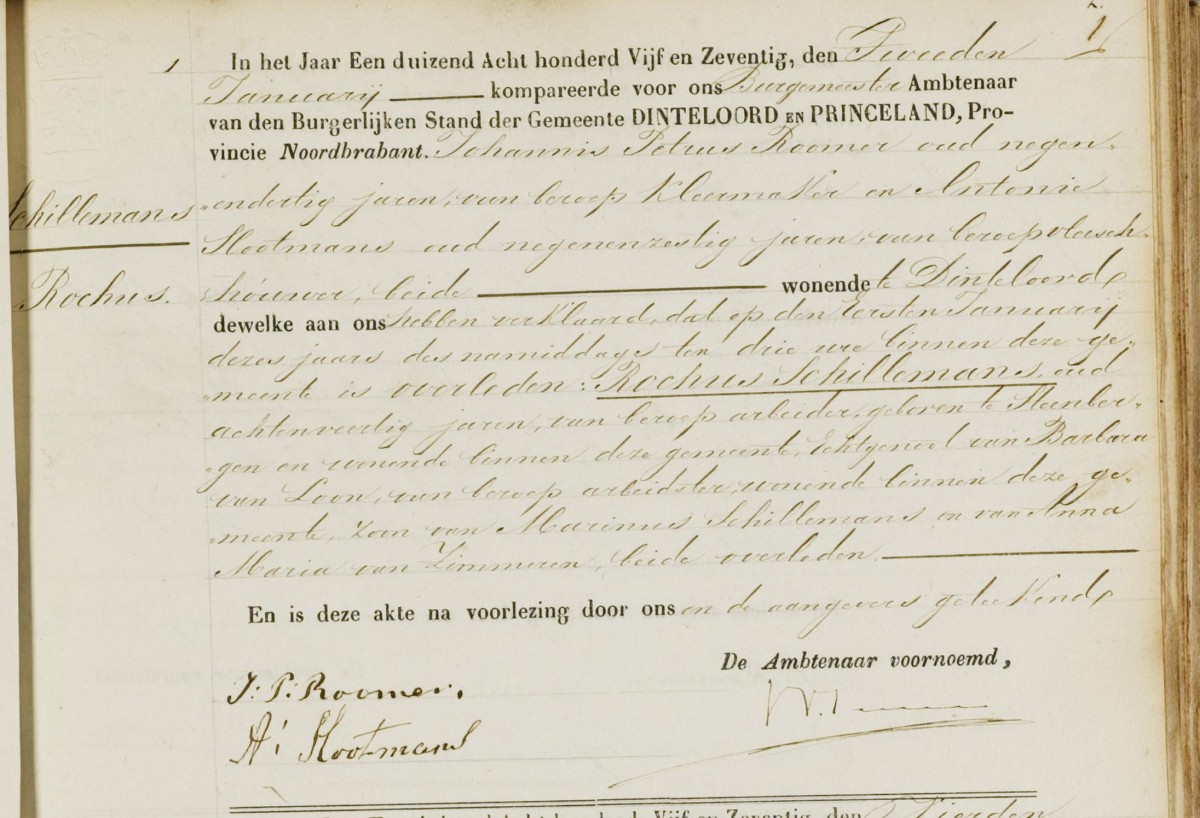 1
1
In het Jaar Een duizend Acht honderd Vijf en Zeventig, den Tweeden
Januarij kompareerde voor ons Burgemeester Ambtenaar
van den Burgerlijken Stand der Gemeente DINTELOORD EN PRINCELAND, Pro-
vincie Noordbrabant. Johannis Petrus Roomer oud negen-
endertig jaren, van beroep Kleermaker en Antonie
Schillemans
Slootmans oud negenenzestig jaren, van beroep vleesch-
Rochus.
houwer, beide wonende te Dinteloord
dewelke aan ons hebben verklaard, dat op den Eersten Januarij
dezes jaars des namiddags ten drie ure binnen deze ge-
meente is overleden: Rochus Schillemans, oud
achtenveertig jaren, van beroep arbeider, geboren te Steenber-
gen en wonende binnen deze gemeente, Echtgenoot van Barbara
van Loon, van beroep arbeidster, wonende binnen deze ge-
meente, zoon van Marinus Schillemans en van Anna
Maria van Zimmeren, beide overleden.
En is deze akte na voorlezing door ons en de aangevers geteekend
De Ambtenaar voornoemd,
J: P: Roomer.
A: Slootmans
Vijf en Zeventig, den Vierden